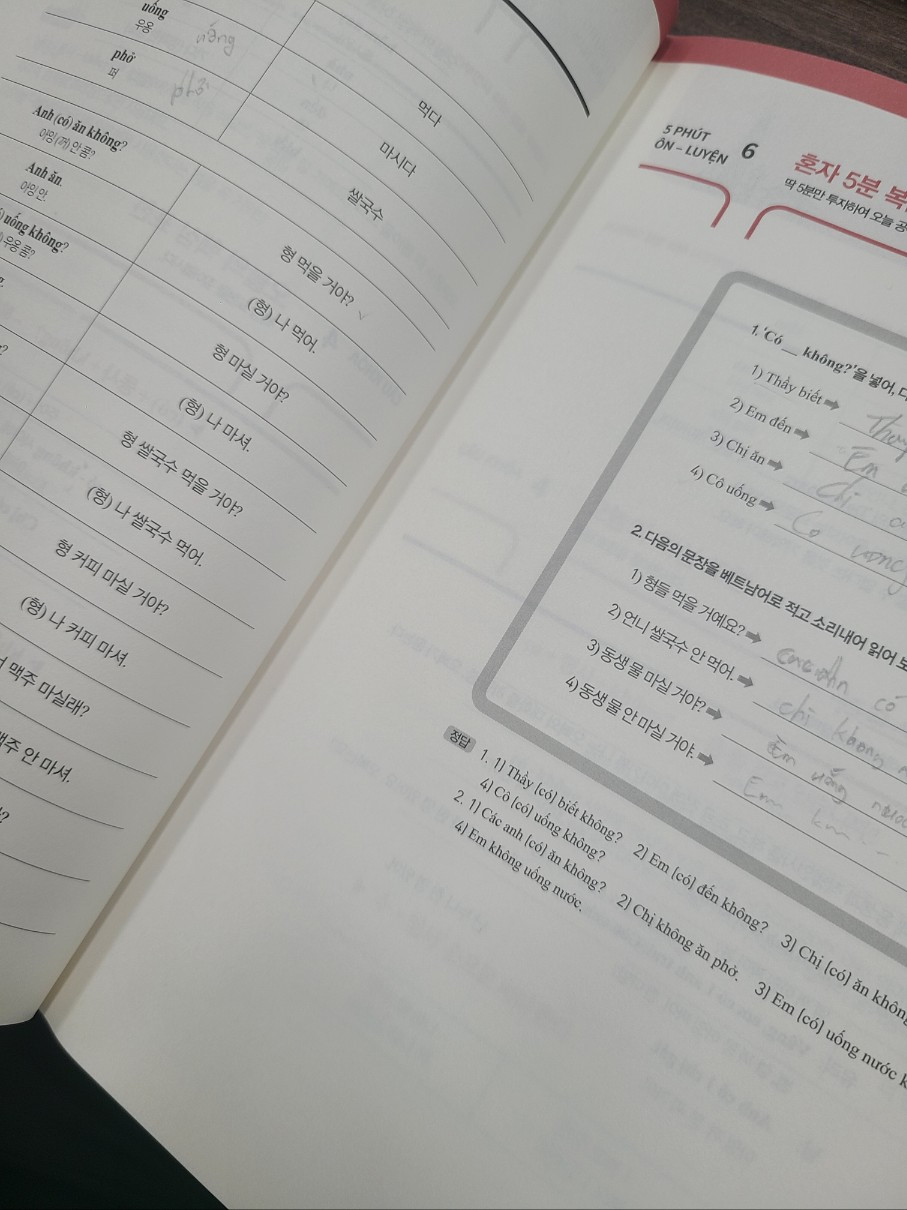 uống
우옹
uống
phở
퍼
phở
Anh (có) ăn không?
아잉 (꺼) 안 콤?
Anh ăn.
아잉 안.
uống không?
우옹 콤?
먹다
마시다
쌀국수
형 먹을 거야?
(형) 나 먹어.
형 마실 거야?
(형) 나 마셔.
형 쌀국수 먹을 거야?
(형) 나 쌀국수 먹어.
형 커피 마실 거야?
(형) 나 커피 마셔.
맥주 마실래?
맥주 안 마셔.
5 PHÚT
ÔN – LUYỆN 6
혼자 5분
딱 5분만 투자하여 오늘
1. ‘Có __ không?’을 넣어,
1) Thầy biết ➡
2) Em đến ➡ Em
3) Chị ăn ➡ Chị
4) Cô uống ➡ Co uong
2. 다음의 문장을 베트남어로 적고 소리내어 읽어
1) 형들 먹을 거예요? ➡ có
2) 언니 쌀국수 안 먹어. ➡ chi khong
3) 동생 물 마실 거야? ➡ Em uống
4) 동생 물 안 마실 거야. ➡ Em km
정답
1. 1) Thầy [có] biết không? 2) Em [có] đến không? 3) Chị [có] ăn không
4) Cô [có] uống không?
2. 1) Các anh [có] ăn không? 2) Chị không ăn phở. 3) Em [có] uống nước
4) Em không uống nước.